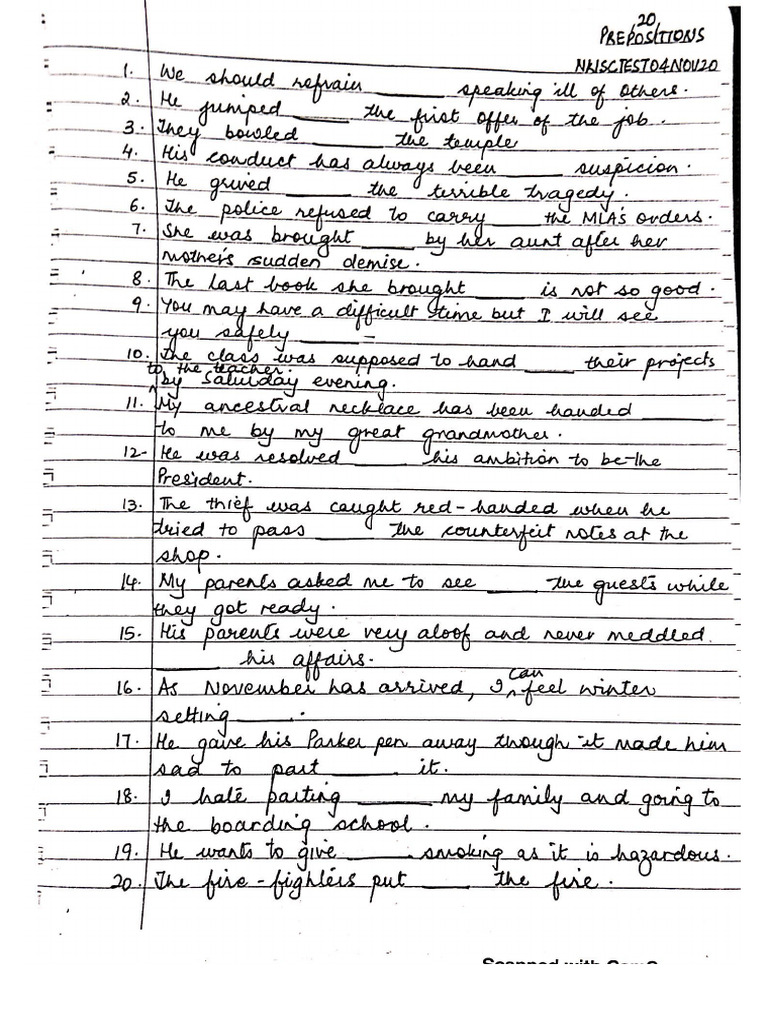 20
PREPOSITIONS
NKISCTEST04NOV20
1. We should refrain ______ speaking ill of others.
2. He jumped ______ the first offer of the job.
3. They bowled ______ the temple
4. His conduct has always been ______ suspicion.
5. He grived ______ the terrible tragedy.
6. The police refused to carry ______ the MLA's orders.
7. She was brought ______ by her aunt after her
mother's sudden demise.
8. The last book she brought ______ is not so good.
9. You may have a difficult time but I will see
you safely ______
10. The class was supposed to hand ______ their projects
to the teacher
by Saturday evening.
11. My ancestral necklace has been handed ______
to me by my great grandmother.
12- He was resolved ______ his ambition to be the
President.
13. The thief was caught red-handed when he
tried to pass ______ the counterfeit notes at the
shop.
14. My parents asked me to see ______ the guests while
they got ready.
15. His parents were very aloof and never meddled
______ his affairs.
16. As November has arrived, I can feel winter
setting ______.
17. He gave his Parker pen away though it made him
sad to part ______ it.
18. I hate parting ______ my family and going to
the boarding school.
19. He wants to give ______ smoking as it is hazardous.
20. The fire-fighters put ______ the fire.